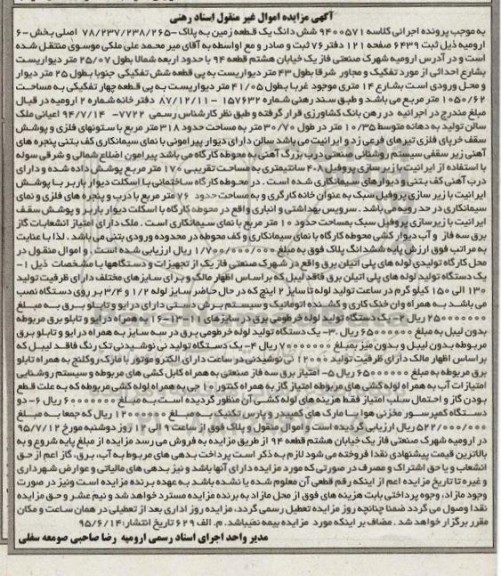 آگهی مزایده اموال غیر منقول اسناد رهنی
به موجب پرونده اجرائی کلاسه ۹۴۰۰۵۷۱ شش دانگ یک قطعه زمین به پلاک ۷۸/۲۳۷/۲۳۸/۲۶۵- اصلی بخش-۶
ارومیه ذیل ثبت ۶۴۳۹ صفحه ۱۲۱ دفتر ۷۶ ثبت و صادر و مع الواسطه به آقای میر محمد علی ملکی موسوی منتقل شده
است و در آدرس ارومیه شهرک صنعتی فاز یک خیابان هشتم قطعه ۹۴ با حدود اربعه شمالا بطول ۲۵/۰۷ متر دیواریست
بشارع احداثی از مورد تفکیک و مجاور شرقا بطول ۴۳ متر دیواریست به پی قطعه شش تفکیکی جنوبا بطول ۲۵ متر دیوار
و محل ورودی است بشارع ۱۴ متری موجود غربا بطول ۴۱/۰۵ متر دیواریست به پی قطعه چهار تفکیکی به مساحت
۱۰۵۰/۶۲ متر مربع می باشد و طبق سند رهنی شماره ۱۵۷۶۳۲ - ۸۷/۱۲/۱۱ دفترخانه شماره ۲ ارومیه در قبال
مبلغ مندرج در اجرائیه در رهن بانک کشاورزی قرار گرفته و طبق نظر کارشناس رسمی ۷۷۲۲- ۹۴/۷/۱۴ اعیانی ملک
سالن تولید به دهانه متوسط ۱۰/۳۵ متر در طول ۳۰/۷۰ متر به مساحت حدود ۳۱۸ متر مربع با ستونهای فلزی و پوشش
سقف خرپای فلزی تیرهای فرعی زد و ایرانیت می باشد سالن دارای دیوار پیرامونی با نمای سیمانکاری کف بتنی پنجره های
آهنی زیر سقفی سیستم روشنائی صنعتی درب بزرگ آهنی به محوطه کارگاه می باشد پیرامون اضلاع شمالی و شرقی سوله
با استفاده از ایرانیت با زیر سازی پروفیل ۴۰۸ سانتیمتری به مساحت تقریبی ۱۷۰ متر مربع پوشش داده شده و دارای
درب آهنی کف بتنی و دیوارهای سیمانکاری شده است. در محوطه کارگاه ساختمانی با اسکلت دیوار باربر با پوشش
ایرانیت با زیر سازی پروفیل سبک به عنوان خانه کارگری و به مساحت حدود ۷۶ متر مربع با درب و پنجره های فلزی و نمای
سیمانکاری در حد رویه می باشد. سرویس بهداشتی و انباری واقع در محوطه کارگاه با اسکلت دیوار باربر و پوشش سقف
ایرانیت با زیر سازی پروفیل سبک بمساحت حدود ۱۰ متر مربع با نمای سیمانکاری است. ملک دارای امتیاز انشعابات گاز
برق سه فاز و آب دیوار کشی محوطه کارگاه با نمای سیمانکاری و کف محوطه در محدوده ورودی بتنی می باشد. لذا با عنایت
به مراتب فوق ارزش پایه ششدانگ پلاک فوق به مبلغ ۱/۷۵۰/۰۰۰/۰۰۰ ریال ارزیابی شده است. و اموال منقول در
محل کارگاه تولیدی لوله های پلی اتیلن برق واقع در شهرک صنعتی فاز یک از تجهیزات و دستگاهها با مشخصات ذیل ۱-
یک دستگاه تولید لوله های پلی اتیلن برق فاقد لیبل که بر اساس اظهار مالک و برای سایزهای مختلف دارای ظرفیت تولید
۱۳۰ الی ۱۵۰ کیلو گرم در ساعت تولید لوله تا سایز ۲ اینچ که در حال حاضر سایز لوله ۱/۲ و ۳/۴ بر روی دستگاه نصب
می باشد به همراه وان خنک کاری و کشنده اتوماتیک و سیستم برش دستی دارای درایو و تابلو برق به مبلغ
۲۵۰۰۰۰۰۰۰ ریال ۲- یک دستگاه تولید لوله خرطومی برق در سایزهای ۱۱-۱۳-۱۶ به همراه درایو و تابلو برق مربوطه
بدون لیبل به مبلغ ۶۵۰۰۰۰۰۰ ریال ۳- یک دستگاه تولید لوله خرطومی برق در سه سایز به همراه درایو و تابلو برق
مربوطه بدون لیبل و بدون میز بمبلغ ۷۰۰۰۰۰۰۰ ریال ۴- یک دستگاه تولید نی نوشیدنی تک رنگ فاقد لیبل که
بر اساس اظهار مالک دارای ظرفیت تولید ۱۲۰۰۰ نی نوشیدنی در ساعت دارای الکترو موتور با مارک روکلنج به همراه تابلو
برق مربوطه به مبلغ ۶۵۰۰۰۰۰۰ ریال ۵- امتیاز برق سه فاز صنعتی به همراه کابل کشی های مربوطه و سیستم روشنایی
امتیازات آب به همراه لوله کشی های مربوطه امتیاز گاز به همراه کنتور ۱۰ جی به همراه لوله کشی مربوطه که به علت قطع
بودن گاز و احتمال سلب امتیاز فقط هزینه های لوله کشی آن منظور گردیده است به مبلغ ۶۰۰۰۰۰۰۰ ریال ۶- دو
دستگاه کمپرسور مخزنی هوا با مارک های کمپیدر و پارس تکنیک به مبلغ ۱۲۰۰۰۰۰۰ ریال که جمعا به مبلغ
۵۲۲/۰۰۰/۰۰۰ ریال ارزیابی گردیده است و اموال منقول و پلاک فوق از ساعت ۹ الی ۱۲ روز دوشنبه مورخ ۹۵/۷/۱۲
در ارومیه شهرک صنعتی فاز یک خیابان هشتم قطعه ۹۴ از طریق مزایده به فروش می رسد مزایده از مبلغ پایه شروع و به
بالاترین قیمت پیشنهادی نقدا فروخته می شود لازم به ذکر است پرداخت بدهی های مربوط به آب، برق، گاز اعم از حق
انشعاب و یا حق اشتراک و مصرف در صورتی که مورد مزایده دارای آنها باشد و نیز بدهی های مالیاتی و عوارض شهرداری
و غیره تا تاریخ مزایده اعم از اینکه رقم قطعی آن معلوم شده یا نشده باشد به عهده برنده مزایده است ونیز در صورت
وجود مازاد، وجوه پرداختی بابت هزینه های فوق از محل مازاد به برنده مزایده مسترد خواهد شد و نیم عشر و حق مزایده
نقدا وصول می گردد ضمنا چنانچه روز مزایده تعطیل رسمی گردد، مزایده روز اداری بعد از تعطیلی در همان ساعت و مکان
مقرر برگزار خواهد شد. مضاف بر اینکه مورد مزایده بیمه نمیباشد. م. الف ۶۲۹ تاریخ انتشار: ۹۵/۶/۱۴
مدیر واحد اجرای اسناد رسمی ارومیه رضا صاحبی صومعه سفلی